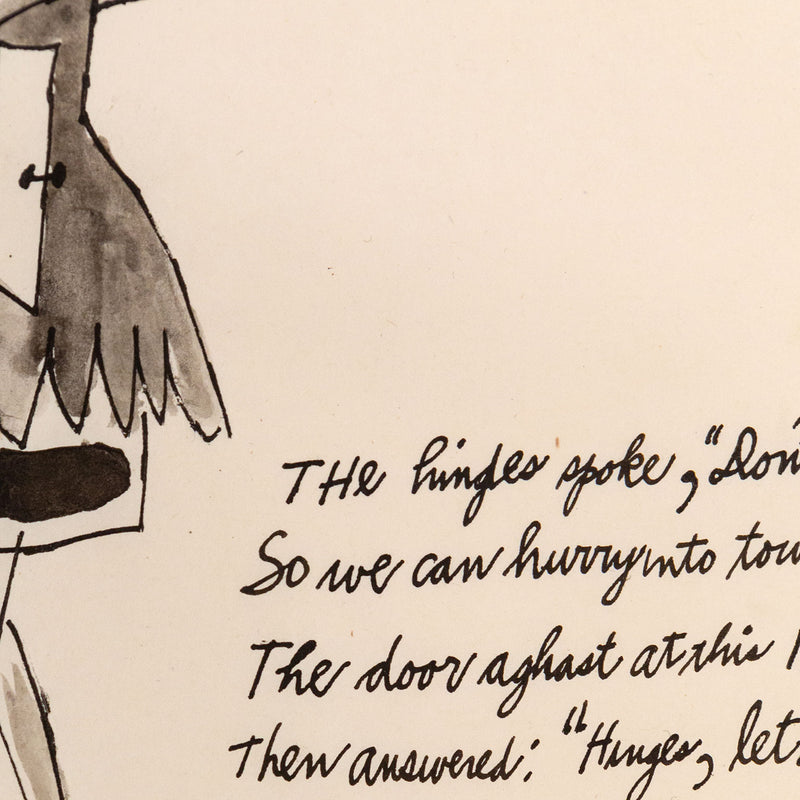 THe hinges spoke, "Don
So we can hurry into tow
The door aghast at this
Then answered: "Hinges, let